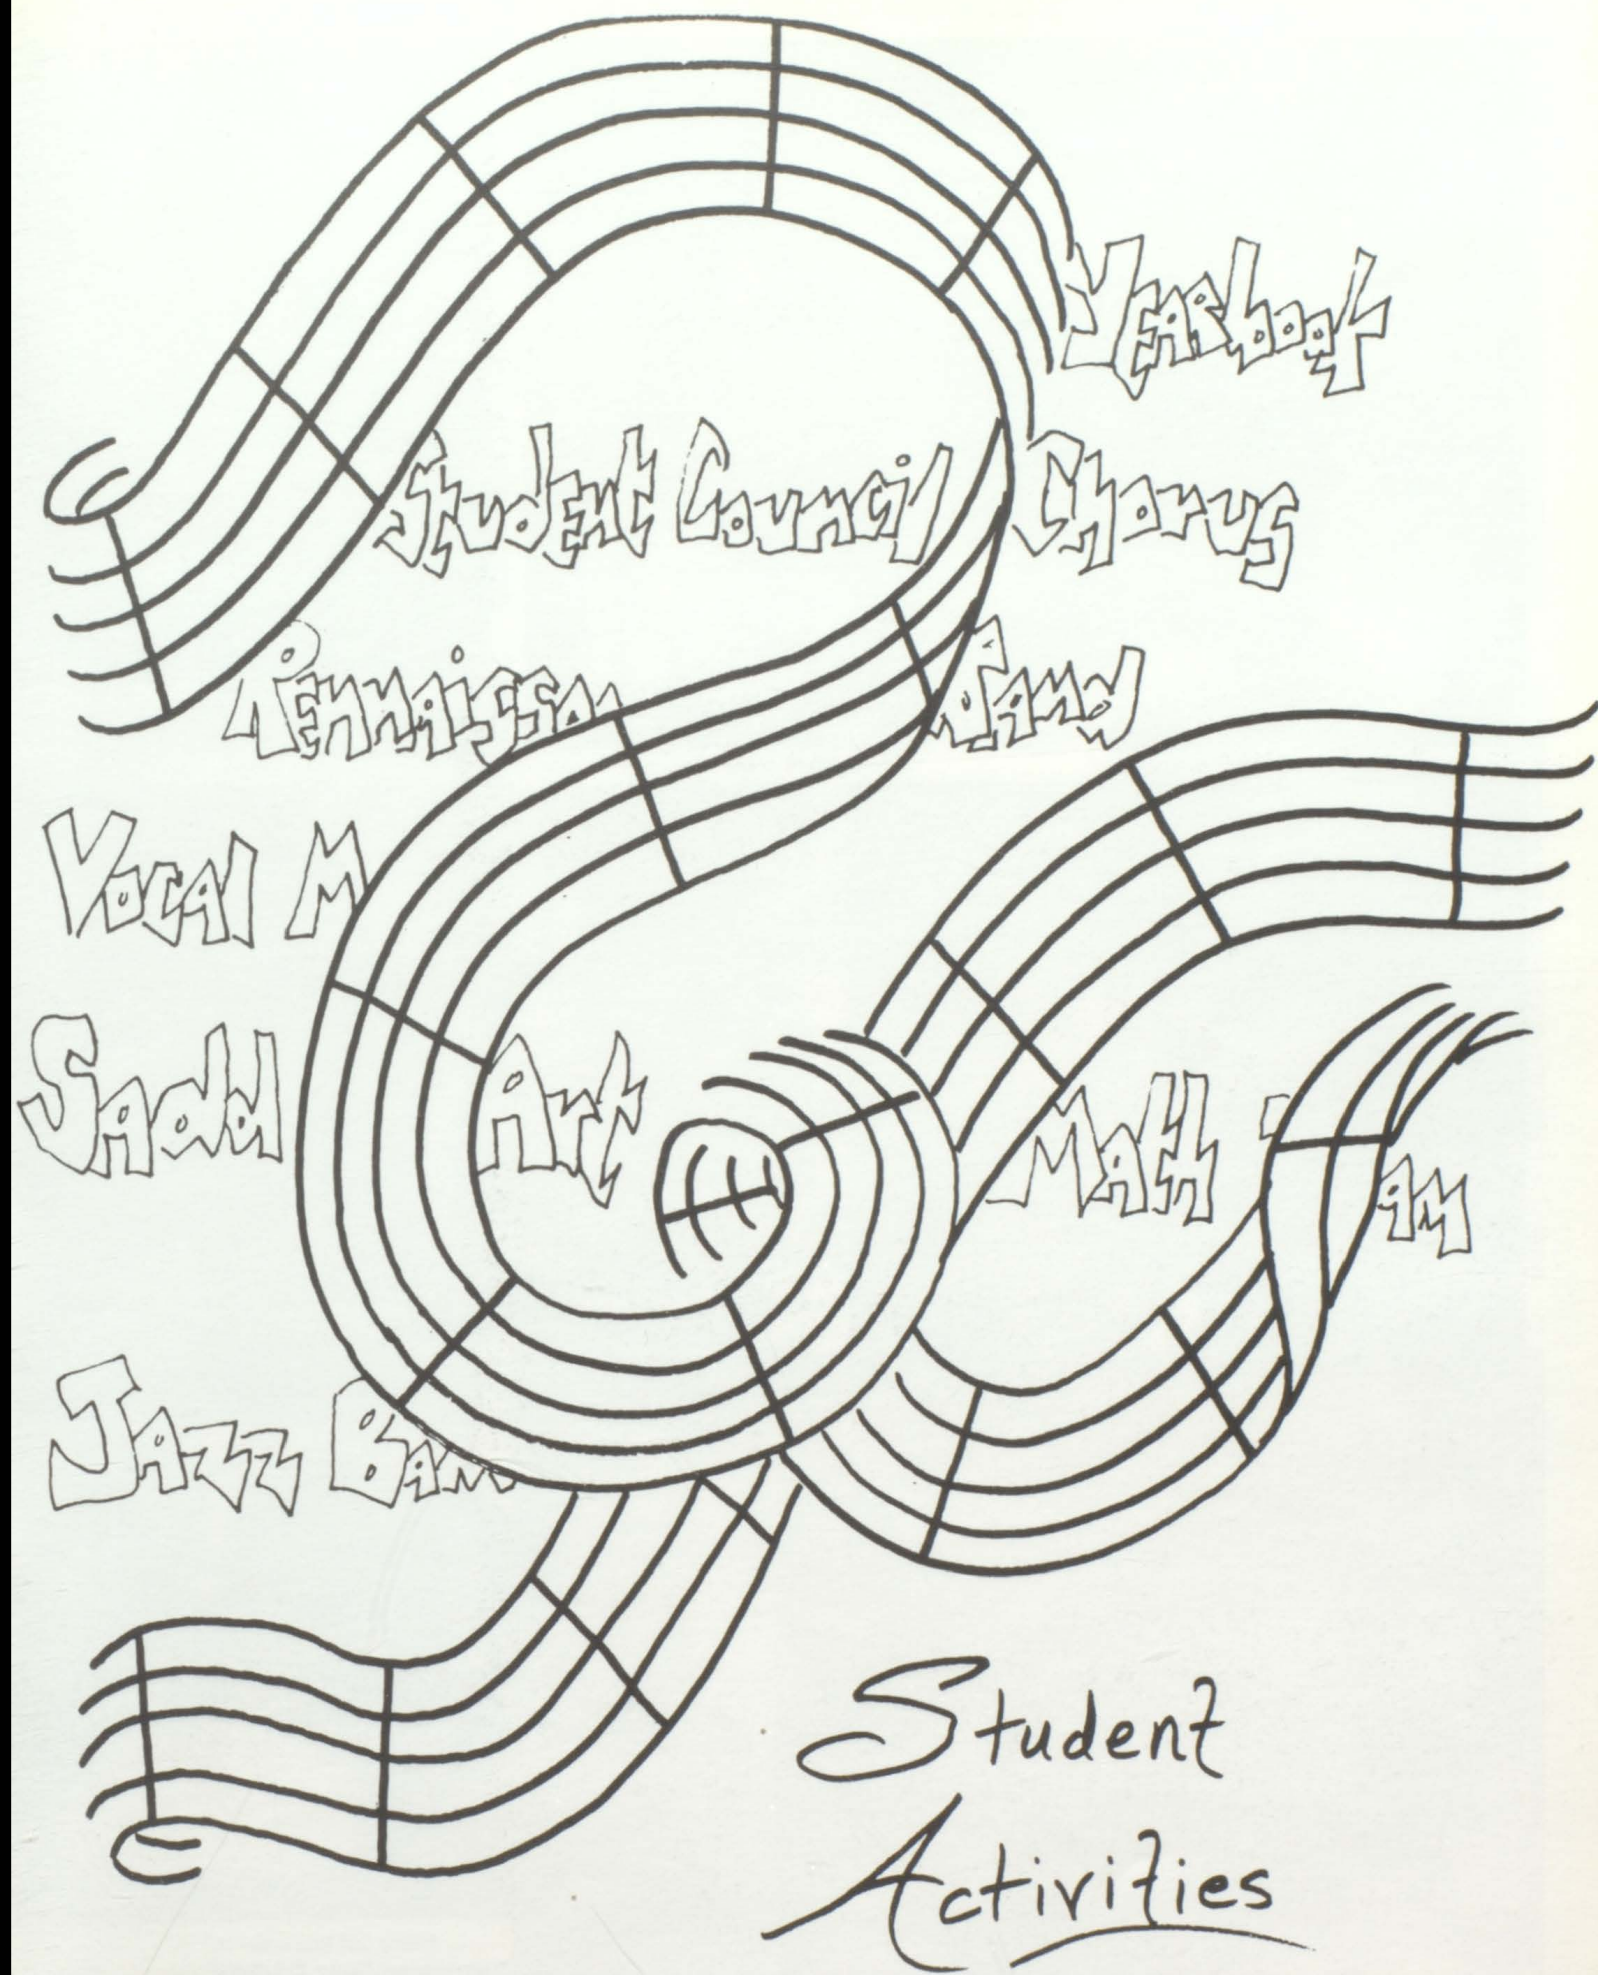 Yearbook
Student Council Chorus
Rennaissan Band
Vocal M
Sadd Art Math T am
Jazz Band
Student
Activities